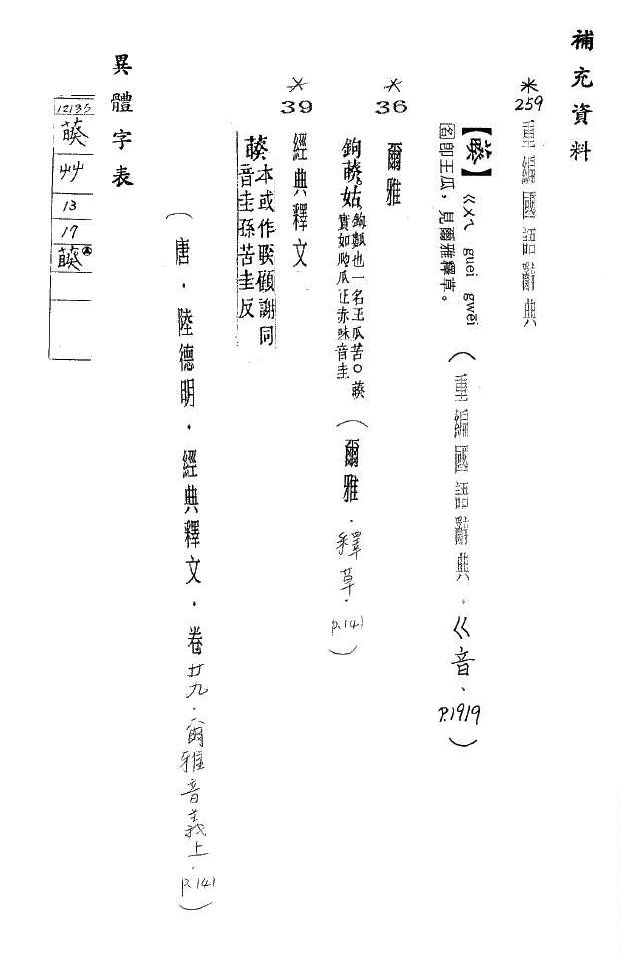 補充資料
*
259
重編國語辭典
【藈】ㄍㄨㄟ guei gwēi
名即王瓜，見爾雅釋草。
（重編國語辭典．ㄍ音、P.1919）
*
36
爾雅
鉤藈姑
鉤瓤也一名王瓜
實如瓝瓜正赤味苦○藈音圭
（爾雅．釋草．P.141）
*
39
經典釋文
藈本或作睽顧謝同
音圭孫苦圭反
（唐．陸德明．經典釋文．卷廿九．爾雅音義上．P.141）
異體字表
12135
藈
艸
13
17
藈